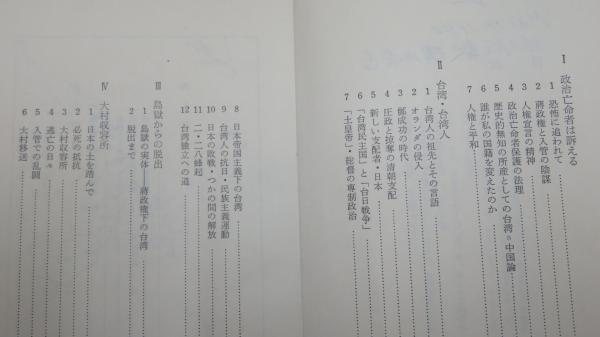 Ⅰ 政治亡命者は訴える
1 恐怖に追われて
2 蔣政権と入管の陰謀
3 人権宣言の精神
4 政治亡命者保護の法理
5 歴史的無知の所産としての台湾＝中国論
6 誰が私の国籍を変えたのか
7 人権と平和
Ⅱ 台湾・台湾人
1 台湾人の祖先とその言語
2 オランダの侵入
3 鄭成功の時代
4 圧政と掠奪の清朝支配
5 新しい支配者・日本
6 「台湾民主国」と「台日戦争」
7 「土皇帝」・総督の専制政治
8 日本帝国主義下の台湾
9 台湾人の抗日・民族主義運動
10 日本の敗戦・つかの間の解放
11 二・二八蜂起
12 台湾独立への道
Ⅲ 島獄からの脱出
1 島獄の実体――蔣政権下の台湾
2 脱出まで
Ⅳ 大村収容所
1 日本の土を踏んで
2 必死の抵抗
3 大村収容所
4 逃亡の日々
5 入管での乱闘
6 大村移送